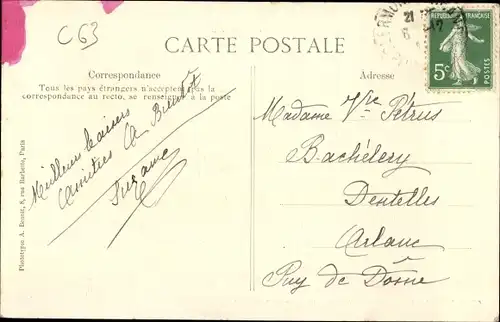 C63
CARTE POSTALE
Correspondance
Tous les pays étrangers n'acceptent pas la
correspondance au recto, se renseigner à la poste
Adresse
RÉPUBLIQUE FRANÇAISE
5c
POSTES
21
Meilleurs baisers
Amitiés
Suzanne
Madame Vve Pétrus
Bachélery
Dentelles
Arlanc
Puy de Dôme
Phototypie A. Benoit, 8, rue Barbette, Paris